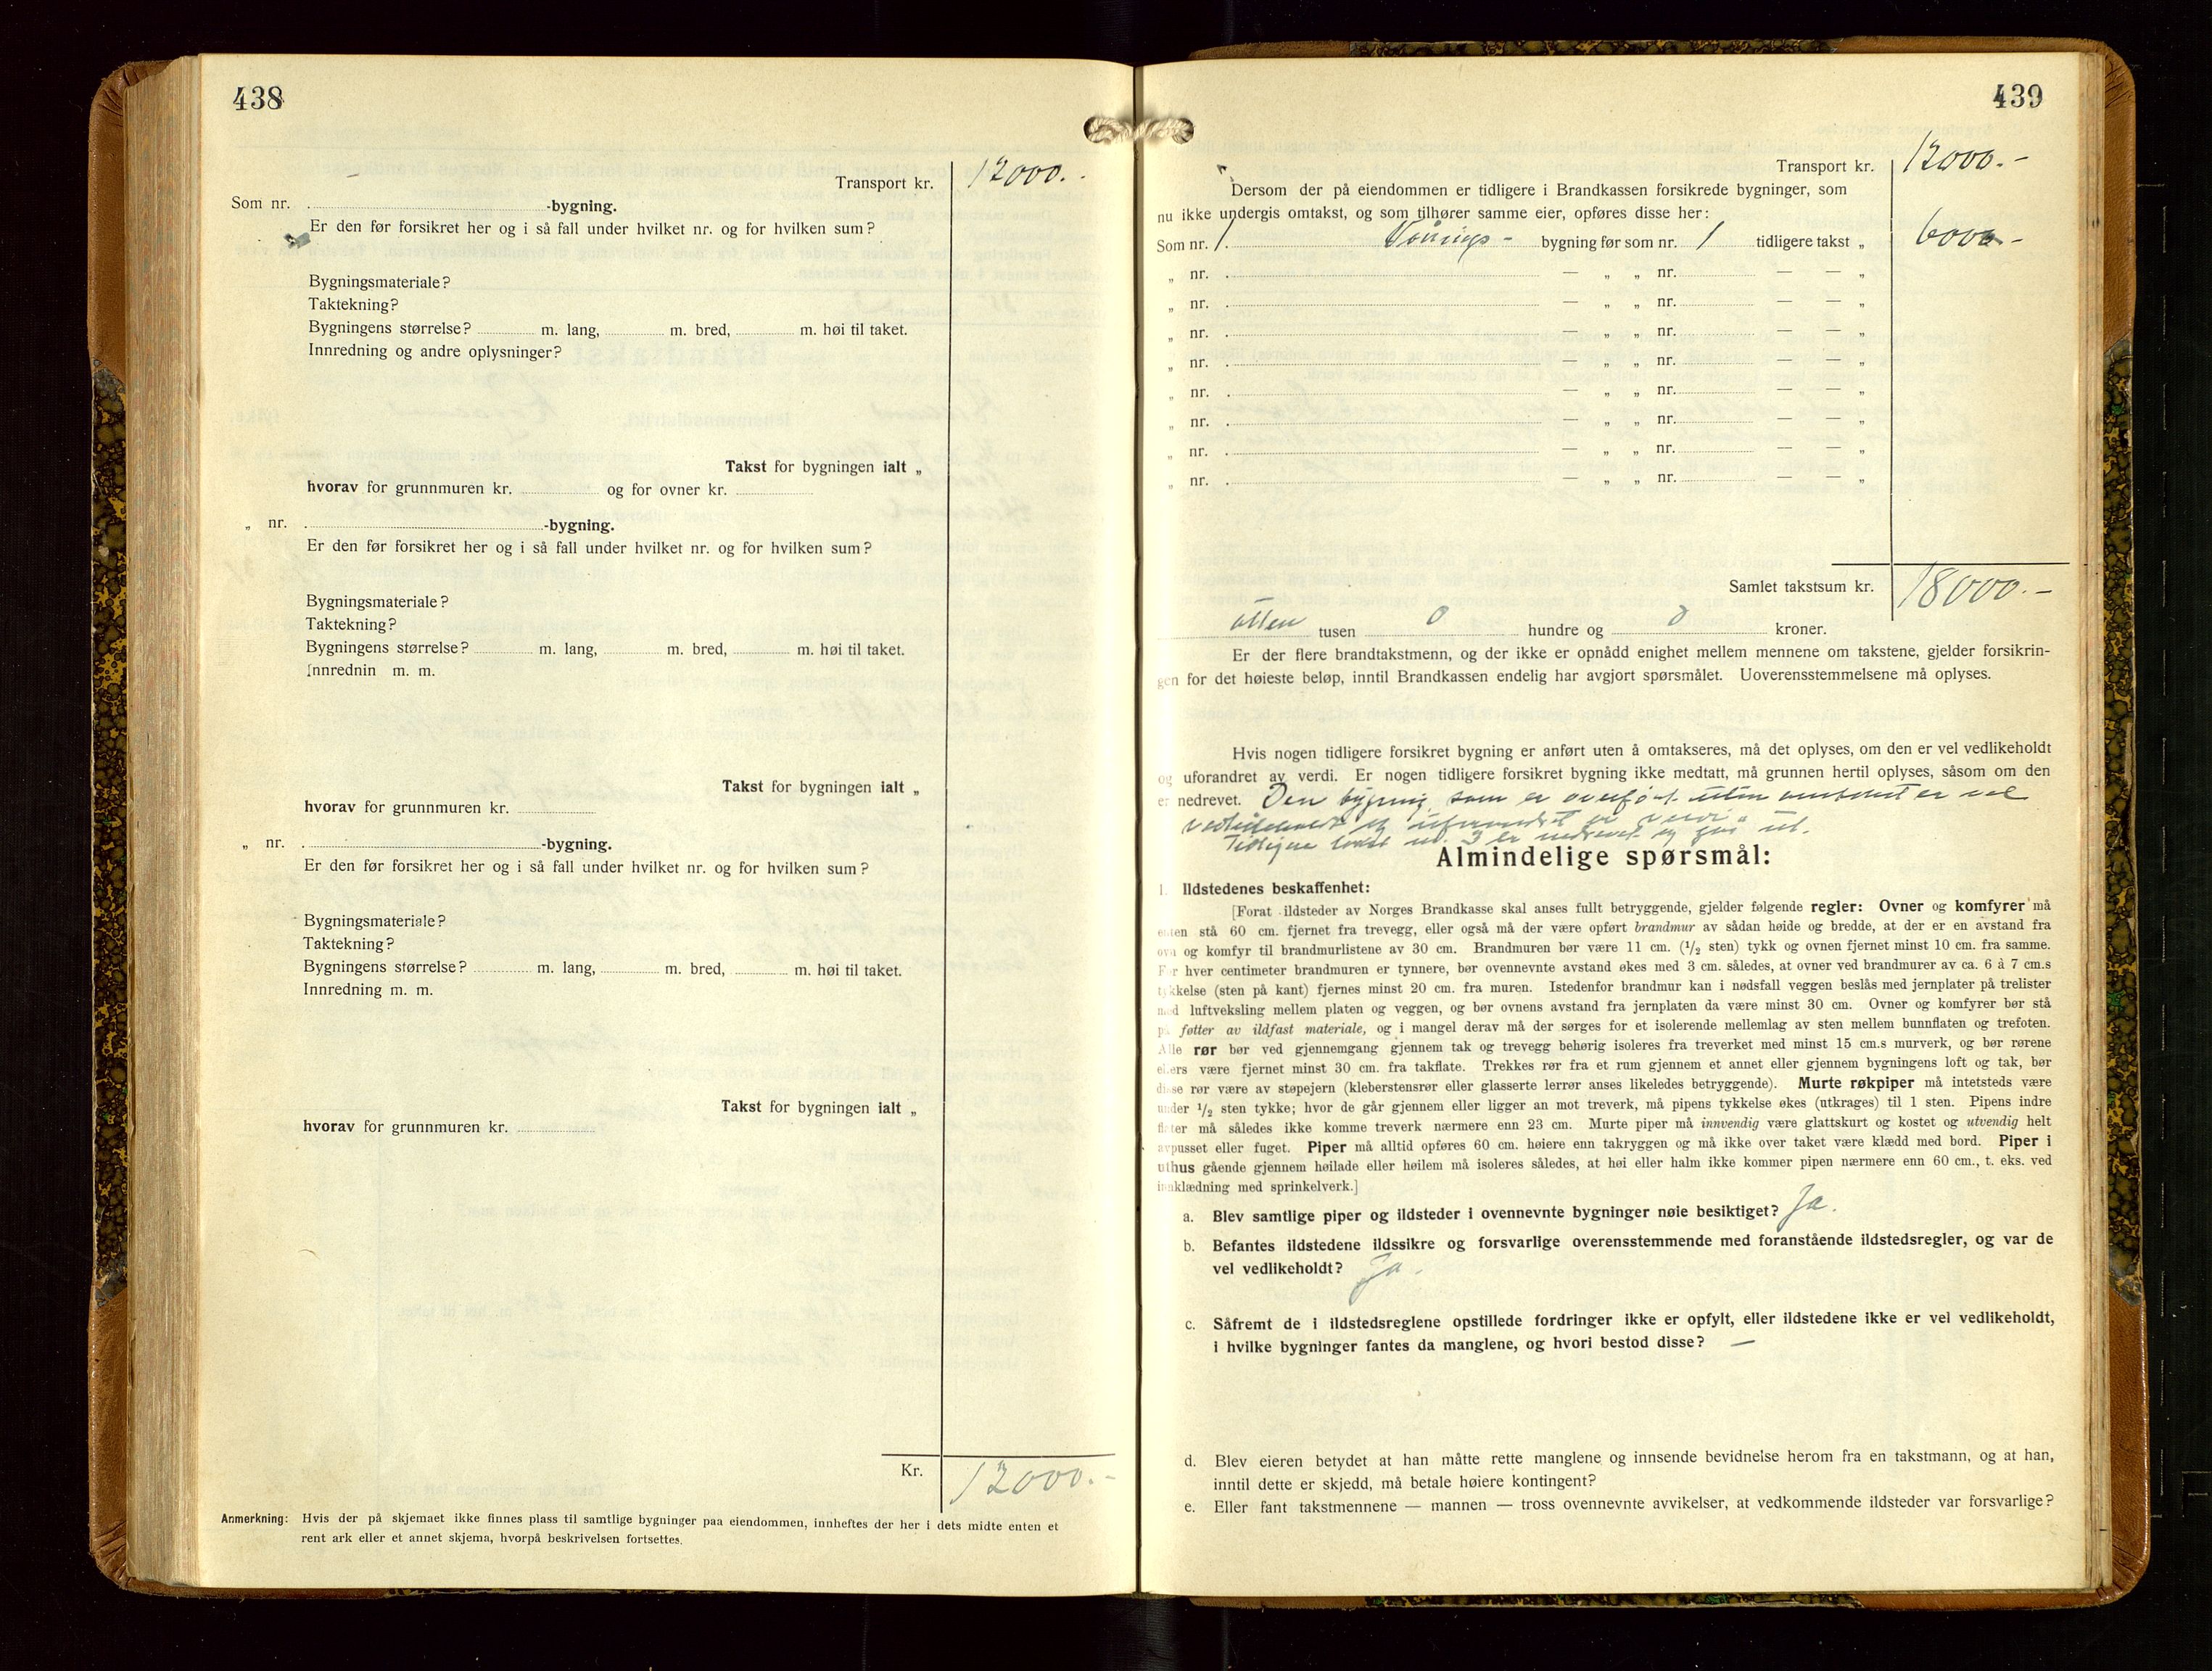 438
Transport kr. 12000.-
Som nr. -bygning.
Er den før forsikret her og i så fall under hvilket nr. og for hvilken sum?
Bygningsmateriale?
Taktekning?
Bygningens størrelse? m. lang, m. bred, m. høi til taket.
Innredning og andre oplysninger?
Takst for bygningen ialt „
hvorav for grunnmuren kr. og for ovner kr.
„ nr. -bygning.
Er den før forsikret her og i så fall under hvilket nr. og for hvilken sum?
Bygningsmateriale?
Taktekning?
Bygningens størrelse? m. lang, m. bred, m. høi til taket.
Innrednin m. m.
Takst for bygningen ialt „
hvorav for grunnmuren kr.
„ nr. -bygning.
Er den før forsikret her og i så fall under hvilket nr. og for hvilken sum?
Bygningsmateriale?
Taktekning?
Bygningens størrelse? m. lang, m. bred, m. høi til taket.
Innredning m. m.
Takst for bygningen ialt „
hvorav for grunnmuren kr.
Kr. 12000.-
Anmerkning: Hvis der på skjemaet ikke finnes plass til samtlige bygninger paa eiendommen, innheftes der her i dets midte enten et
rent ark eller et annet skjema, hvorpå beskrivelsen fortsettes.
439
Transport kr. 12000.-
Dersom der på eiendommen er tidligere i Brandkassen forsikrede bygninger, som
nu ikke undergis omtakst, og som tilhører samme eier, opføres disse her:
Som nr. 1. Vånings- bygning før som nr. 1 tidligere takst „ 6000.-
„ nr. — „ „ nr. — — „
„ nr. — „ „ nr. — — „
„ nr. — „ „ nr. — — „
„ nr. — „ „ nr. — — „
„ nr. — „ „ nr. — — „
„ nr. — „ „ nr. — — „
„ nr. — „ „ nr. — — „
„ nr. — „ „ nr. — — „
Samlet takstsum kr. 18000.-
atten tusen 0 hundre og 0 kroner.
Er der flere brandtakstmenn, og der ikke er opnådd enighet mellem mennene om takstene, gjelder forsikrin-
gen for det høieste beløp, inntil Brandkassen endelig har avgjort spørsmålet. Uoverensstemmelsene må oplyses.
Hvis nogen tidligere forsikret bygning er anført uten å omtakseres, må det oplyses, om den er vel vedlikeholdt
og uforandret av verdi. Er nogen tidligere forsikret bygning ikke medtatt, må grunnen hertil oplyses, såsom om den
er nedrevet. Den bygning som er overført uten omtakst er vel
vedlikeholdt og uforandret av verdi.
Tidligere takst nr. 3 er nedrevet og går ut.
Almindelige spørsmål:
1. Ildstedenes beskaffenhet:
[Forat ildsteder av Norges Brandkasse skal anses fullt betryggende, gjelder følgende regler: Ovner og komfyrer må
enten stå 60 cm. fjernet fra trevegg, eller også må der være opført brandmur av sådan høide og bredde, at der er en avstand fra
ovn og komfyr til brandmurlistene av 30 cm. Brandmuren bør være 11 cm. (1/2 sten) tykk og ovnen fjernet minst 10 cm. fra samme.
For hver centimeter brandmuren er tynnere, bør ovennevnte avstand økes med 3 cm. således, at ovner ved brandmurer av ca. 6 à 7 cm.s
tykkelse (sten på kant) fjernes minst 20 cm. fra muren. Istedenfor brandmur kan i nødsfall veggen beslås med jernplater på trelister
med luftveksling mellem platen og veggen, og bør ovnens avstand fra jernplaten da være minst 30 cm. Ovner og komfyrer bør stå
på føtter av ildfast materiale, og i mangel derav må der sørges for et isolerende mellemlag av sten mellem bunnflaten og trefoten.
Alle rør bør ved gjennemgang gjennem tak og trevegg behørig isoleres fra treverket med minst 15 cm.s murverk, og bør rørene
ellers være fjernet minst 30 cm. fra takflate. Trekkes rør fra et rum gjennem et annet eller gjennem bygningens loft og tak, bør
disse rør være av støpejern (kleberstensrør eller glasserte lerrør anses likeledes betryggende). Murte røkpiper må intetsteds være
under 1/2 sten tykke; hvor de går gjennem eller ligger an mot treverk, må pipens tykkelse økes (utkrages) til 1 sten. Pipens indre
flater må således ikke komme treverk nærmere enn 23 cm. Murte piper må innvendig være glattskurt og kostet og utvendig helt
avpusset eller fuget. Piper må alltid opføres 60 cm. høiere enn takryggen og må ikke over taket være klædd med bord. Piper i
uthus gående gjennem høilade eller høilem må isoleres således, at høi eller halm ikke kommer pipen nærmere enn 60 cm., t. eks. ved
innklædning med sprinkelverk.]
a. Blev samtlige piper og ildsteder i ovennevnte bygninger nøie besiktiget? Ja.
b. Befantes ildstedene ildssikre og forsvarlige overensstemmende med foranstående ildstedsregler, og var de
vel vedlikeholdt? Ja.
c. Såfremt de i ildstedsreglene opstillede fordringer ikke er opfylt, eller ildstedene ikke er vel vedlikeholdt,
i hvilke bygninger fantes da manglene, og hvori bestod disse? —
d. Blev eieren betydet at han måtte rette manglene og innsende bevidnelse herom fra en takstmann, og at han,
inntil dette er skjedd, må betale høiere kontingent?
e. Eller fant takstmennene — mannen — tross ovennevnte avvikelser, at vedkommende ildsteder var forsvarlige?